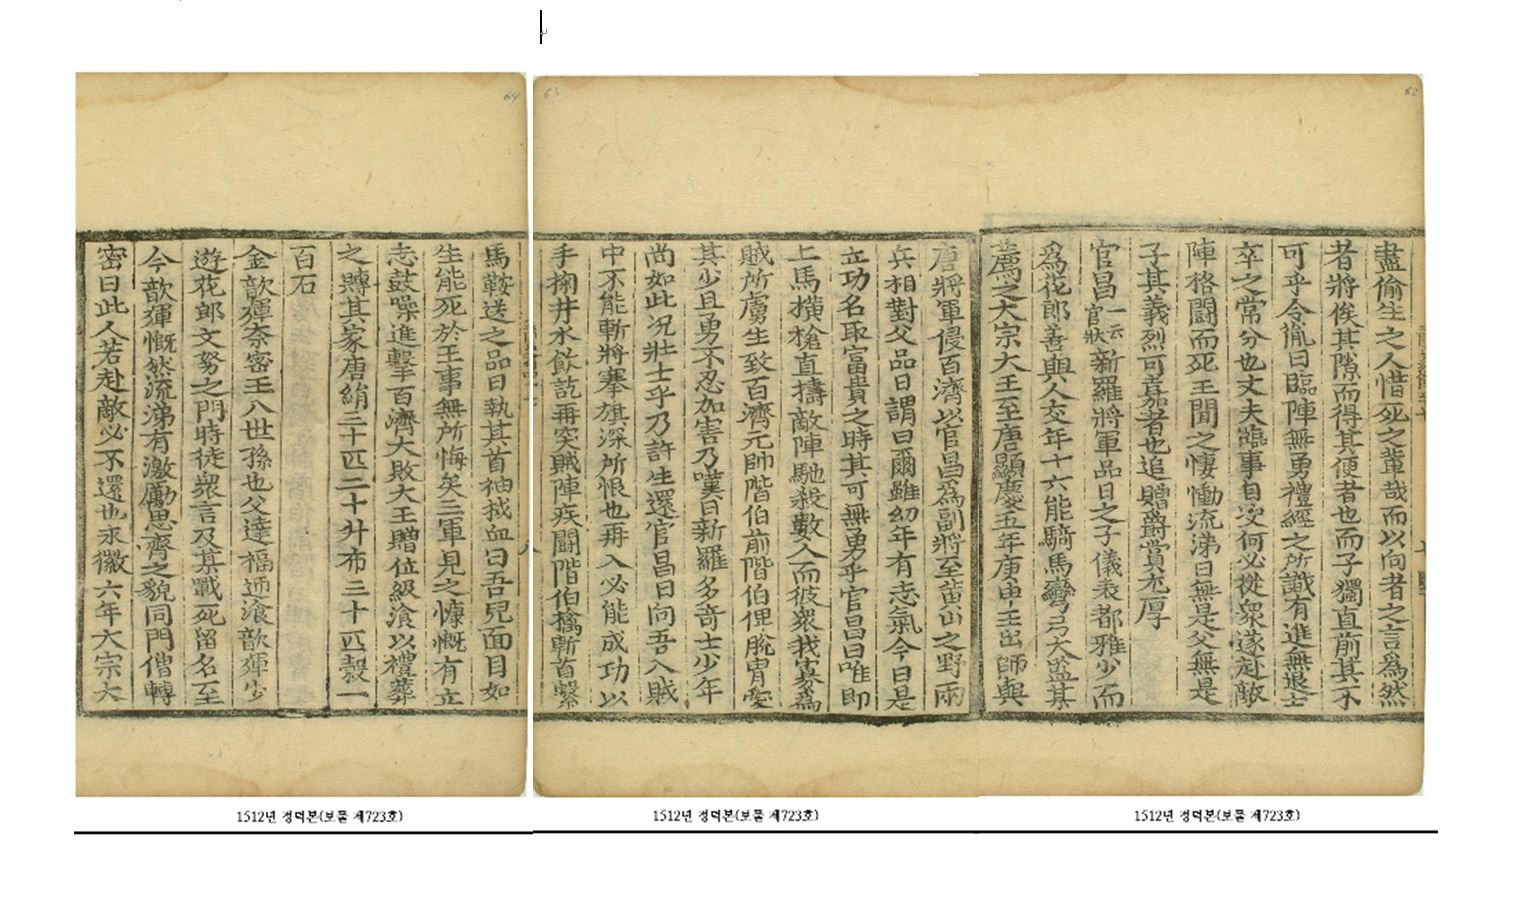 盡偷生之人惜死之輩哉而以向者之言爲然
者將俟其隙而得其便者也而子獨直前其不
可乎令胤曰臨陣無勇禮經之所譏有進無退士
卒之常分也丈夫臨事自決何必從衆遂赴敵
陣格鬪而死王聞之悽慟流涕曰無是父無是
子其義烈可嘉者也追贈爵賞尤厚
官昌一云官狀新羅將軍品日之子儀表都雅少而
爲花郎善與人交年十六能騎馬彎弓大監某
薦之大宗大王至唐顯慶五年庚申王出師與
唐將軍侵百濟以官昌爲副將至黃山之野兩
兵相對父品日謂曰爾雖幼年有志氣今日是
立功名取富貴之時其可無勇乎官昌曰唯即
上馬橫槍直擣敵陣馳殺數人而彼衆我寡爲
賊所虜生致百濟元帥階伯前階伯俾脫冑愛
其少且勇不忍加害乃嘆曰新羅多奇士少年
尚如此况壯士乎乃許生還官昌曰向吾入賊
中不能斬將搴旗深所恨也再入必能成功以
手掬井水飮訖再突賊陣疾鬪階伯擒斬首繫
馬鞍送之品日執其首袖拭血曰吾兒面目如
生能死於王事無所悔矣三軍見之慷慨有立
志鼓噪進擊百濟大敗大王贈位級湌以禮葬
之賻其家唐絹三十匹二十升布三十匹穀一
百石
金歆運奈密王八世孫也父達福迊湌歆運少
遊花郎文努之門時徒衆言及某戰死留名至
今歆運慨然流涕有激勵思齊之貌同門僧轉
密曰此人若赴敵必不還也永徽六年大宗大
62
63
64
1512년 정덕본(보물 제723호)
1512년 정덕본(보물 제723호)
1512년 정덕본(보물 제723호)